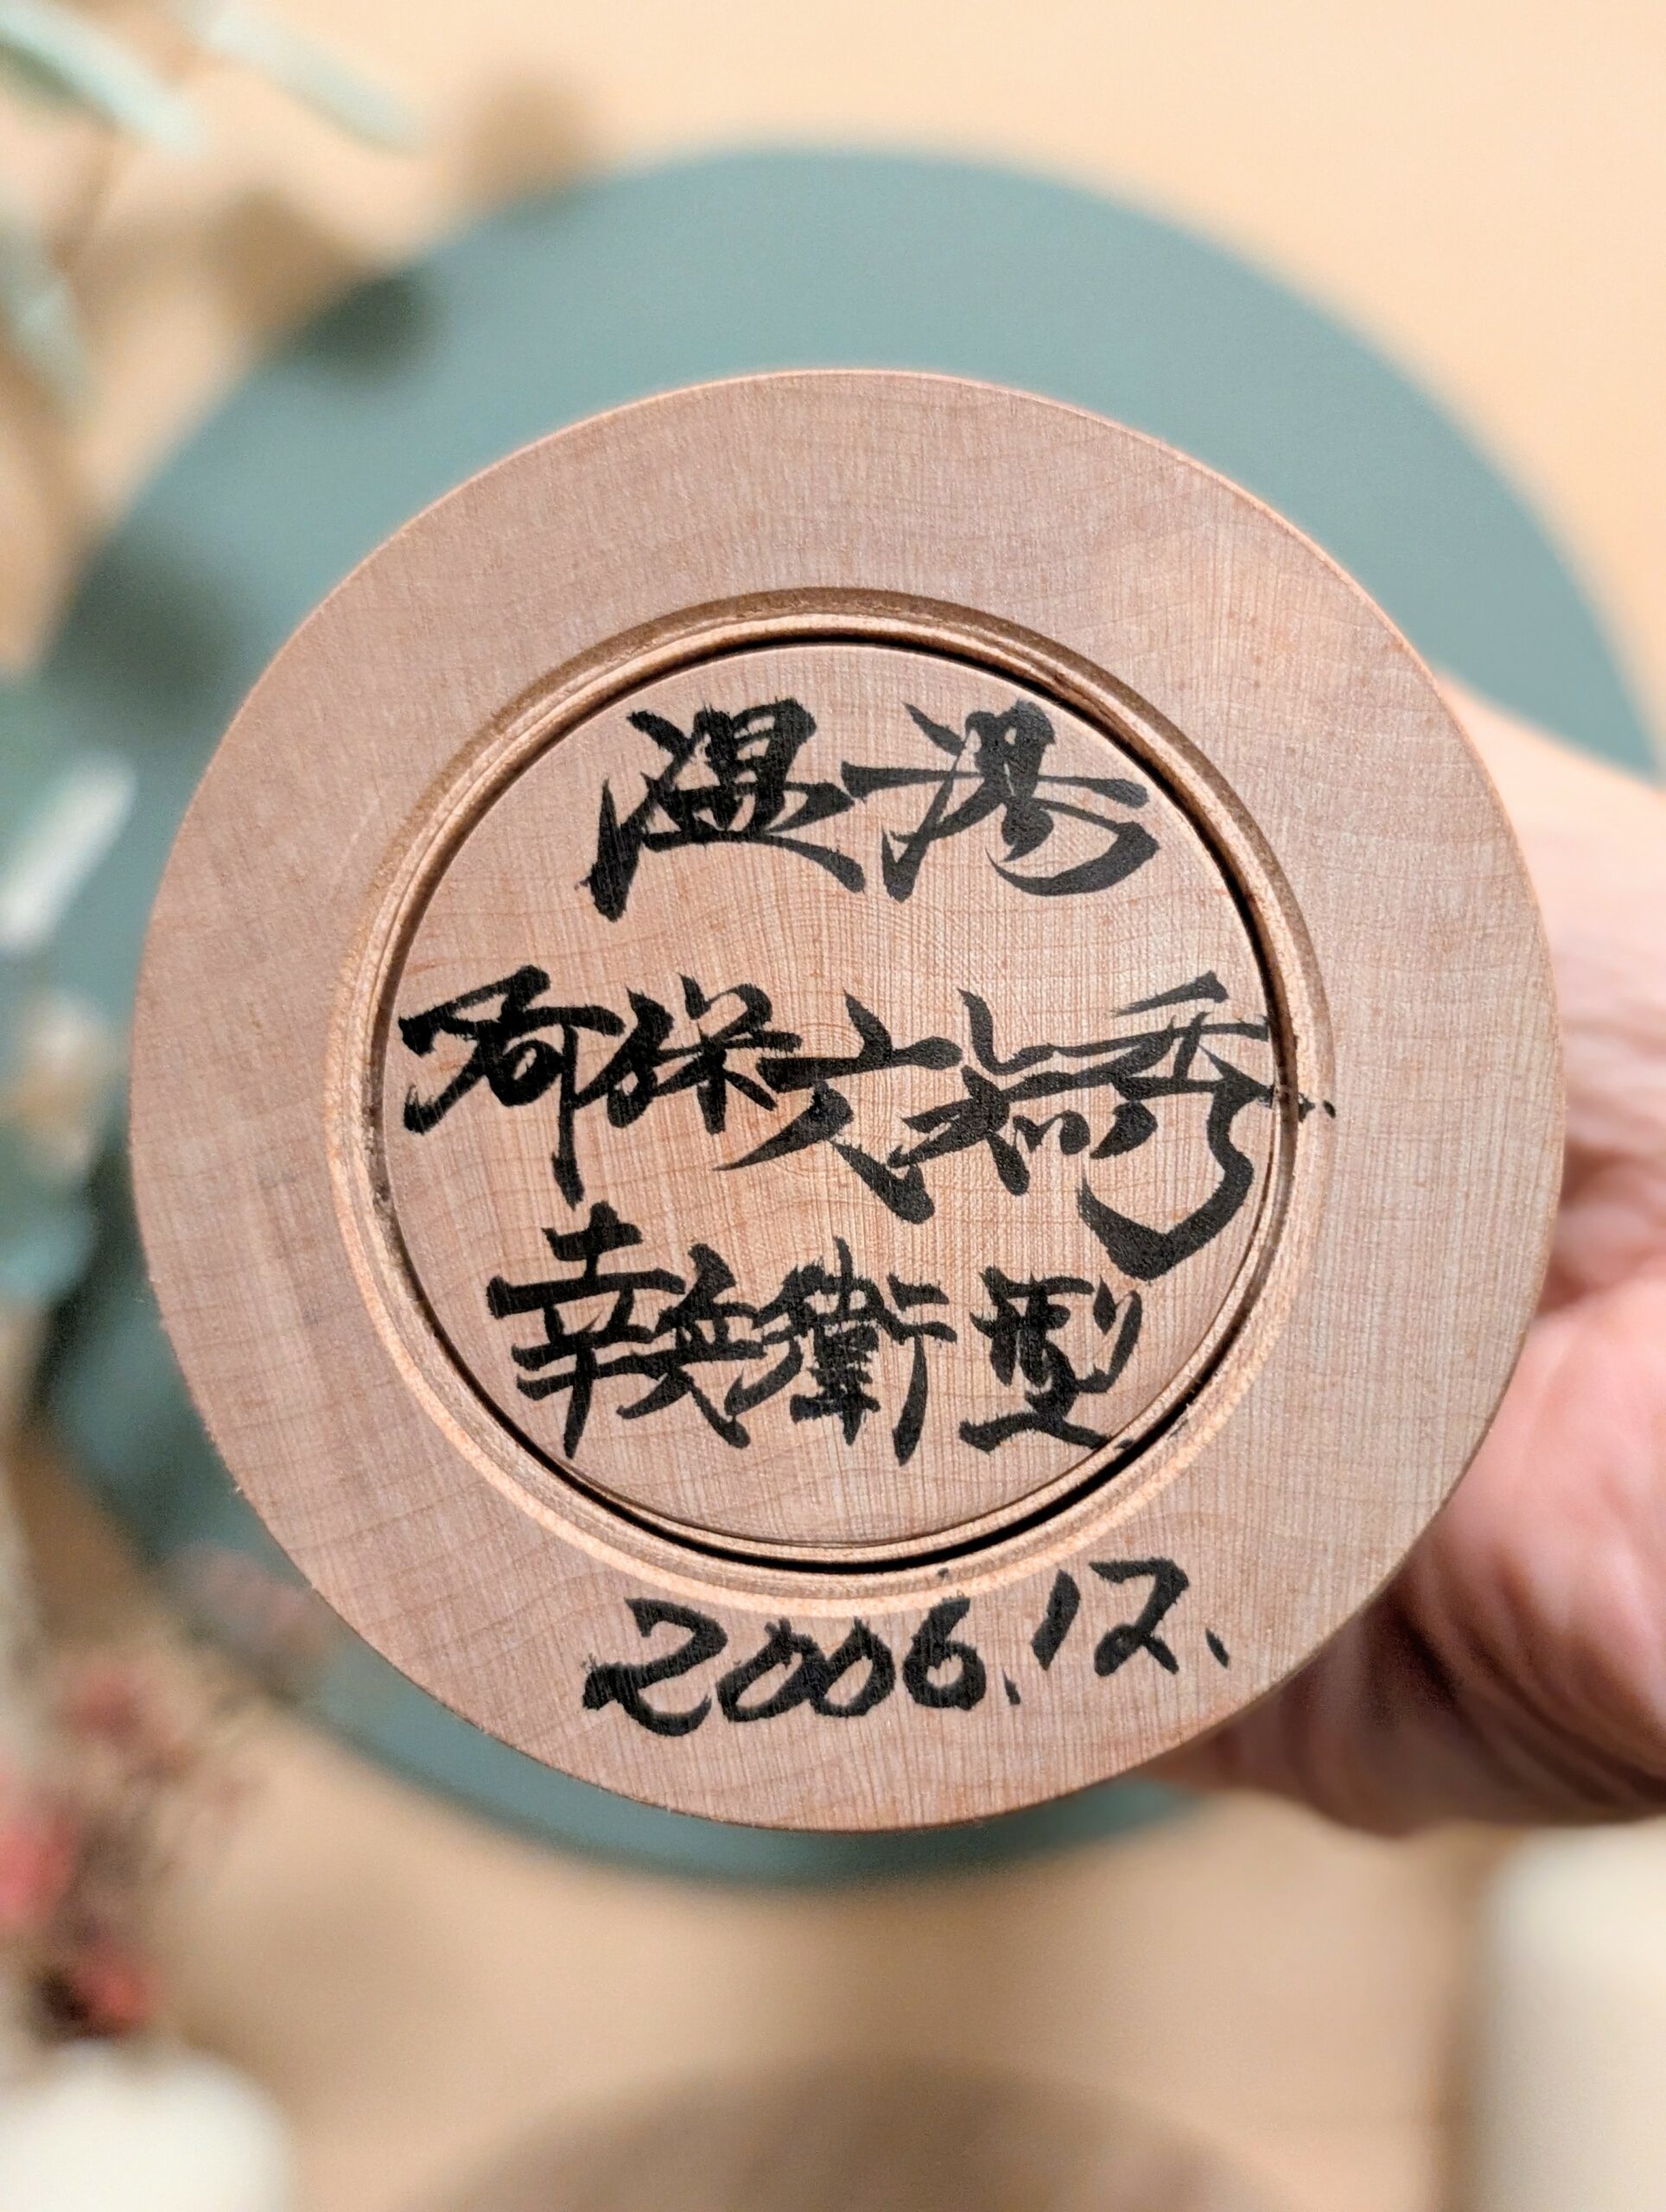 温湯
阿保六知秀
幸兵衛型
2006.12.